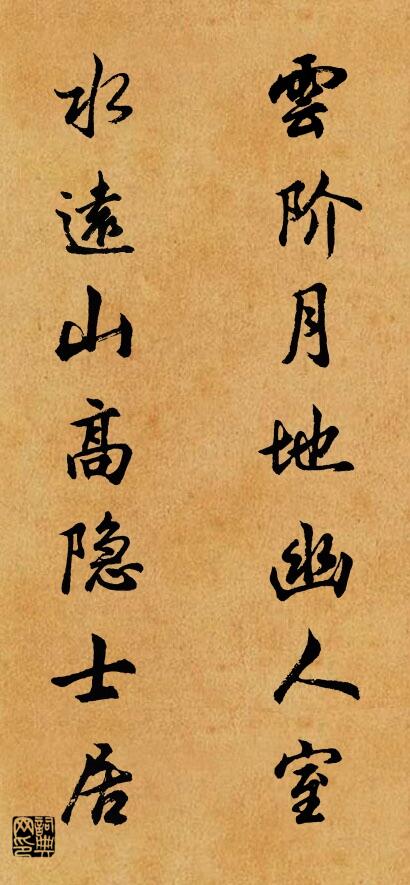 雲阶月地幽人室
水遠山高隐士居
詞典网印